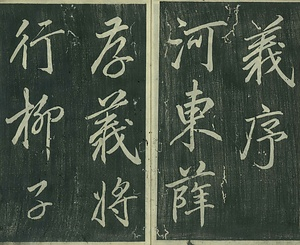 義序
河東薛
存義將
行柳子